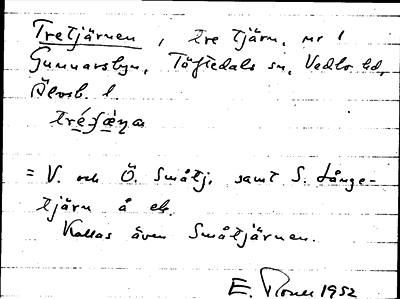 Tretjärnen, tre tjärn. nr 1
Gunnarsbyn, Töftedals sn, Vedbo hd,
Älvsb. l.
= V. och Ö. Småtj. samt S. Långe-
tjärn å ek.
Kallas även Småtjärnen.
E. 1952